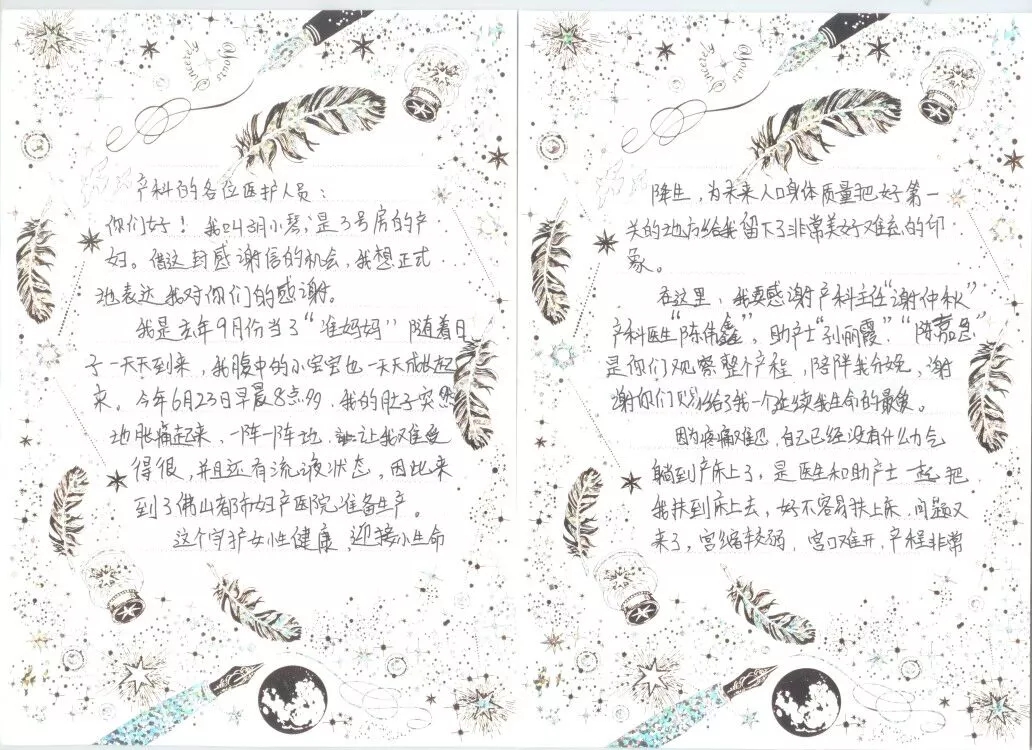 产科的各位医护人员：
你们好！我叫胡小琴，是3号房的产
妇。借这封感谢信的机会，我想正式
地表达我对你们的感谢。
我是去年9月份当了“准妈妈”随着日
子一天天到来，我腹中的小宝宝也一天天成长起
来。今年6月23日早晨8点多，我的肚子突然
地胀痛起来，一阵一阵地，让我难受
得很，并且还有流液状态，因此来
到了佛山都市妇产医院准备生产。
这个守护女性健康，迎接小生命
降生，为未来人口身体质量把好第一
关的地方给我留下了非常美好难忘的印
象。
在这里，我要感谢产科主任“谢仲秋”
产科医生“陈伟鑫”，助产士“孙丽霞”“陈嘉
是你们观察整个产程，陪伴我分娩，谢
谢你们赐给了我一个延续我生命的最象。
因为疼痛难忍，自己已经没有什么力气
躺到产床上了，是医生和助产士一起把
我扶到床上去，好不容易扶上床，问题又
来了，宫缩较弱，宫口难开，产程非常